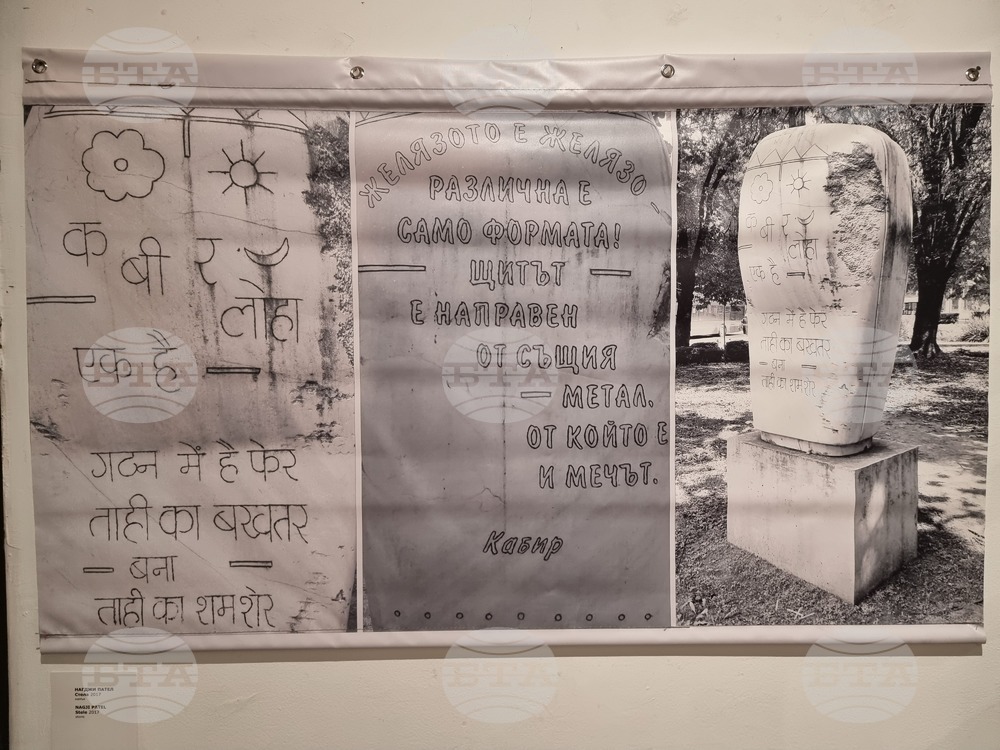 क बी र लोहा
एक है —
गठन में है फेर
ताही का बखतर
— बना —
ताही का शमशेर
ЖЕЛЯЗОТО Е ЖЕЛЯЗО –
РАЗЛИЧНА Е
САМО ФОРМАТА!
— ЩИТЪТ —
Е НАПРАВЕН
ОТ СЪЩИЯ
— МЕТАЛ,
ОТ КОЙТО Е
И МЕЧЪТ.
Кабир
क बी र लोहा
एक है —
गठन में है फेर
ताही का बखतर
— बना —
ताही का शमशेर
НАГДЖИ ПАТЕЛ
Стела 2017
NAGJI PATEL
Stele 2017
БТА